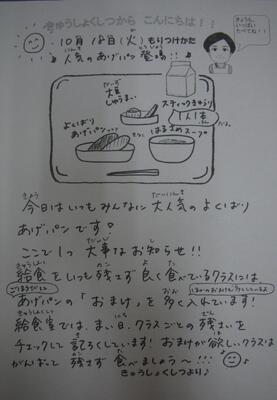 きゅうしょくしつから こんにちは!!
きょうも、いっぱいたべてね!!
10月18日(火)もりつけかた
♪人気のあげパン登場!!♪
大豆しゅうまい
スティックきゅうり
1人1本
だよ。
よくばりあげパン
はるさめスープ
今日はいつもみんなに大人気のよくばり
あげパンです!
ここで1つ大事なお知らせ!!
給食をいつも残さず良く食べているクラスには、
あげパンの「おまけ」を多く入れています!
給食室では、まい日、クラスごとの残さいを
チェックして記ろくしています!おまけが欲しいクラスは
がんばって残さず食べましょう〜!!!
きゅうしょくしつより♪